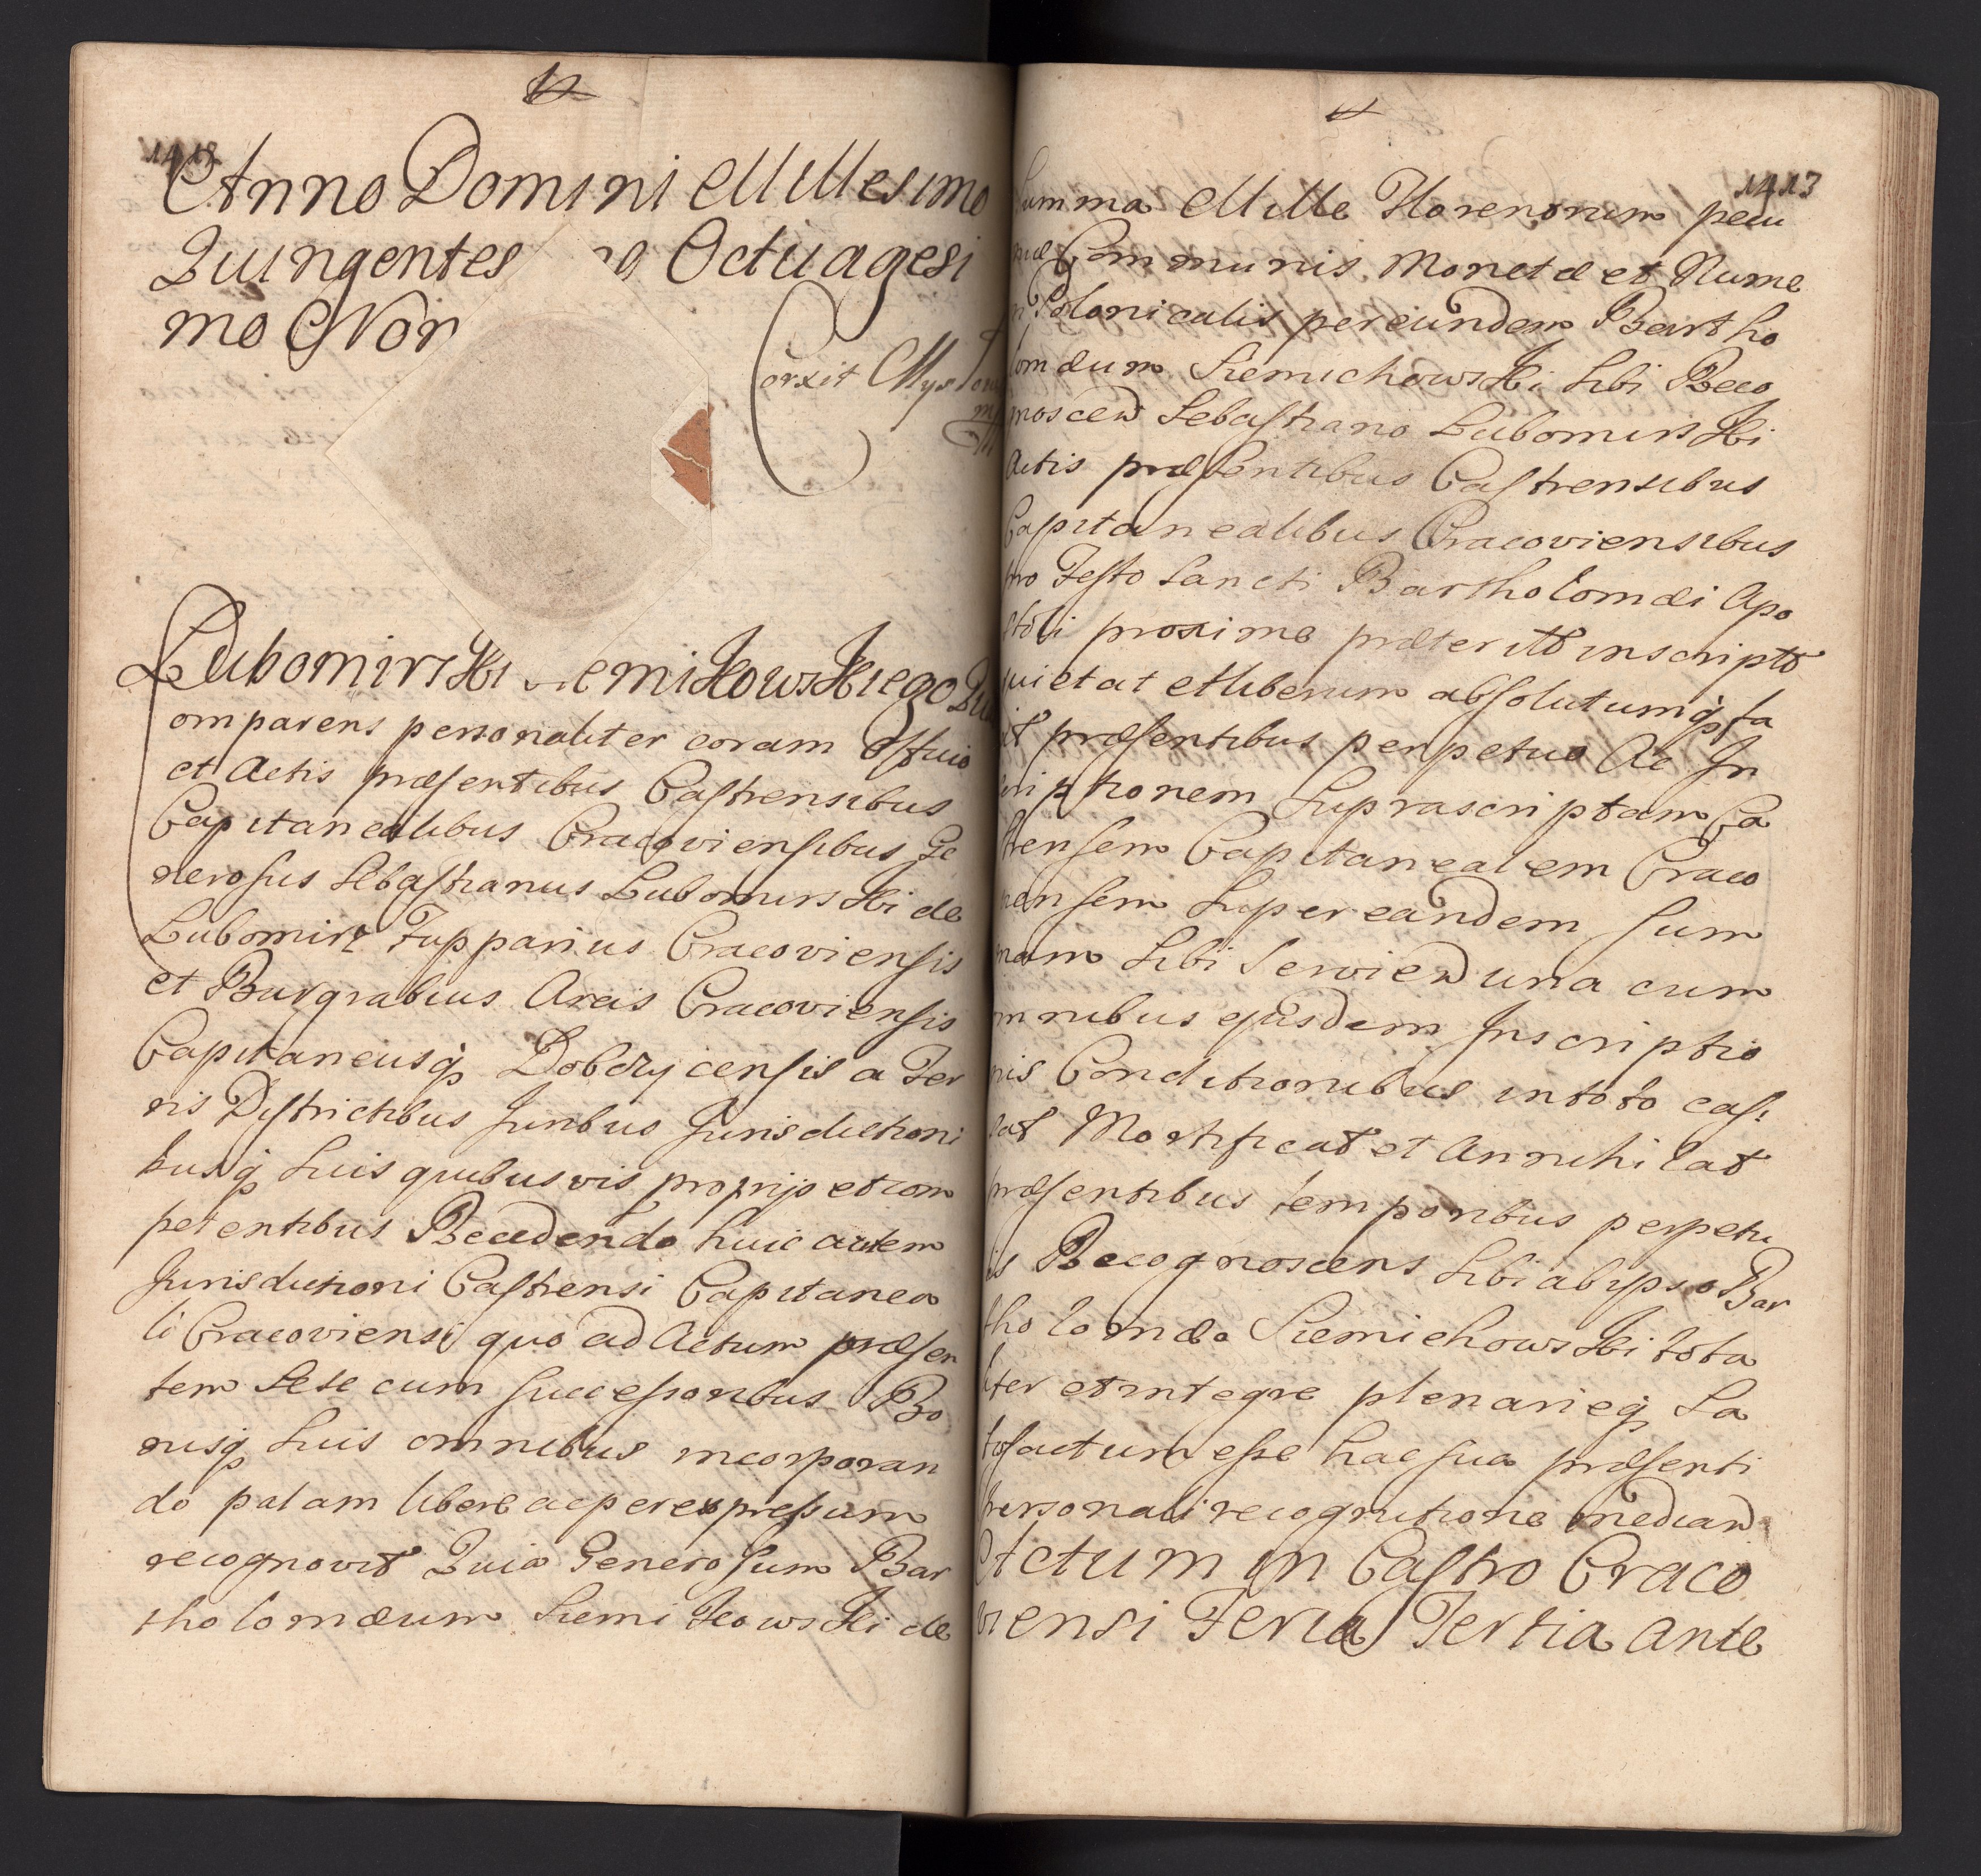 1412
Anno Domini Millesimo
Quingentes mo Octuagesi
mo Non
Corxit
Lubomirski Siemikowskiego
omparens personaliter coram Officio
et Actis præsentibus Castrensibus
Capitanealibus Cracoviensibus Ge
nerosus Sebastianus Lubomirski de
Lubomirz Zupparius Cracoviensis
et Burgrabius Arcis Cracoviensis
Capitaneusq Dobczycensis a Ter
ris Districtibus Juribus Jurisdictioni
busq Suis quibusvis proprijs et com
petentibus Recedendo huic autem
Jurisdictioni Castrensi Capitanea
li Cracoviensi quo ad Actum præsen
tem Sese cum successoribus Bo
nisq Suis omnibus incorporan
do palam libere ac per expressum
recognovit Quia Generosum Bar
tholomæum Siemikowski de
1413
Summa Mille Florenorum pecu
niæ Communis Monetæ et Nume
ri Polonicalis per eundem Bartho
lomæum Siemichowski Sibi Reco
gnoscen Sebastiano Lubomirski
Actis præsentibus Castrensibus
Capitanealibus Cracoviensibus
pro Festo Sancti Bartholomæi Apo
stoli proxime præterito inscripto
quietat et liberum absolutumq fa
cit præsentibus perpetuo Ac In
scriptionem Suprascriptam Ca
strensem Capitanealem Craco
viensem Super eandem Sum
mam Sibi Servien una cum
omnibus ejusdem Inscriptio
nis Conditionibus in toto cas
sat Mortificat et Annihilat
præsentibus temporibus perpetu
is Recognoscens Sibi ab ipso Bar
tholomæo Siemichowski tota
liter et integre plenarieq Sa
tisfactum esse hac sua præsenti
personali recognitione median
Actum in Castro Craco
viensi Feria Tertia ante